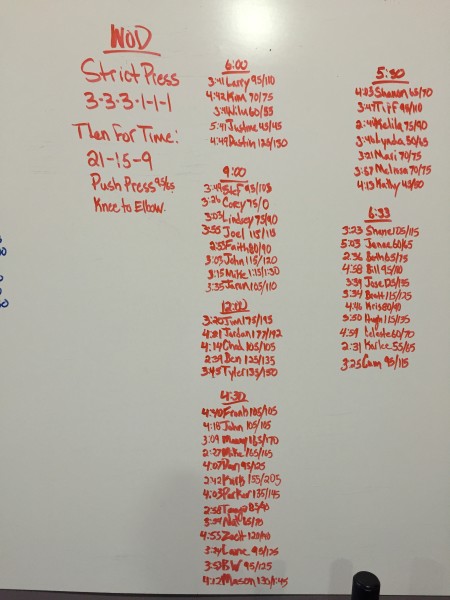 WOD
Strict Press
3-3-3-1-1-1
Then For Time:
21-15-9
Push Press 95/65
Knee to Elbow
6:00
3:41 Larry 95/110
4:42 Kim 70/75
60/85
5:41 Justine 45/45
4:49 Dustin 125/130
9:00
3:49 Stef 95/105
3:26 Corey 75/0
3:03 Lindsey 75/90
3:55 Joel 115/115
2:53 Faith 80/90
3:03 John 115/120
3:15 Mike 115/130
3:35 Jaron 105/110
12:00
3:20 175/195
4:21 Jordan 177/192
4:14 Chad 105/105
2:39 Ben 125/135
3:45 Tyler 135/150
4:30
4:40 Frank 105/105
4:18 John 105/105
3:09 165/170
2:27 Mike 165/165
4:07 Dan 95/125
2:42 Kurt 155/205
4:03 Parker 135/145
2:58
4:53 Zach 120/140
3:24 Lane 95/125
BW 95/125
4:12 Mason 130/145
5:30
4:23 Shanon 65/70
3:47 Tiff 95/110
2:44 Kalila 75/90
3:46 Lynda 50/65
3:21 Mari 70/75
3:57 Melissa 70/75
4:13 Kathy 45/50
6:33
3:23 Shane 105/115
5:03 Janae 60/65
2:36 Beth 65/75
4:58 Bill 95/110
3:39 Jose 125/135
3:34 Brett 115/125
4:46 Kris 80/90
3:50 Hugh 115/135
4:59 Celeste 60/70
2:31 Karlee 55/65
3:25 Cam 95/115